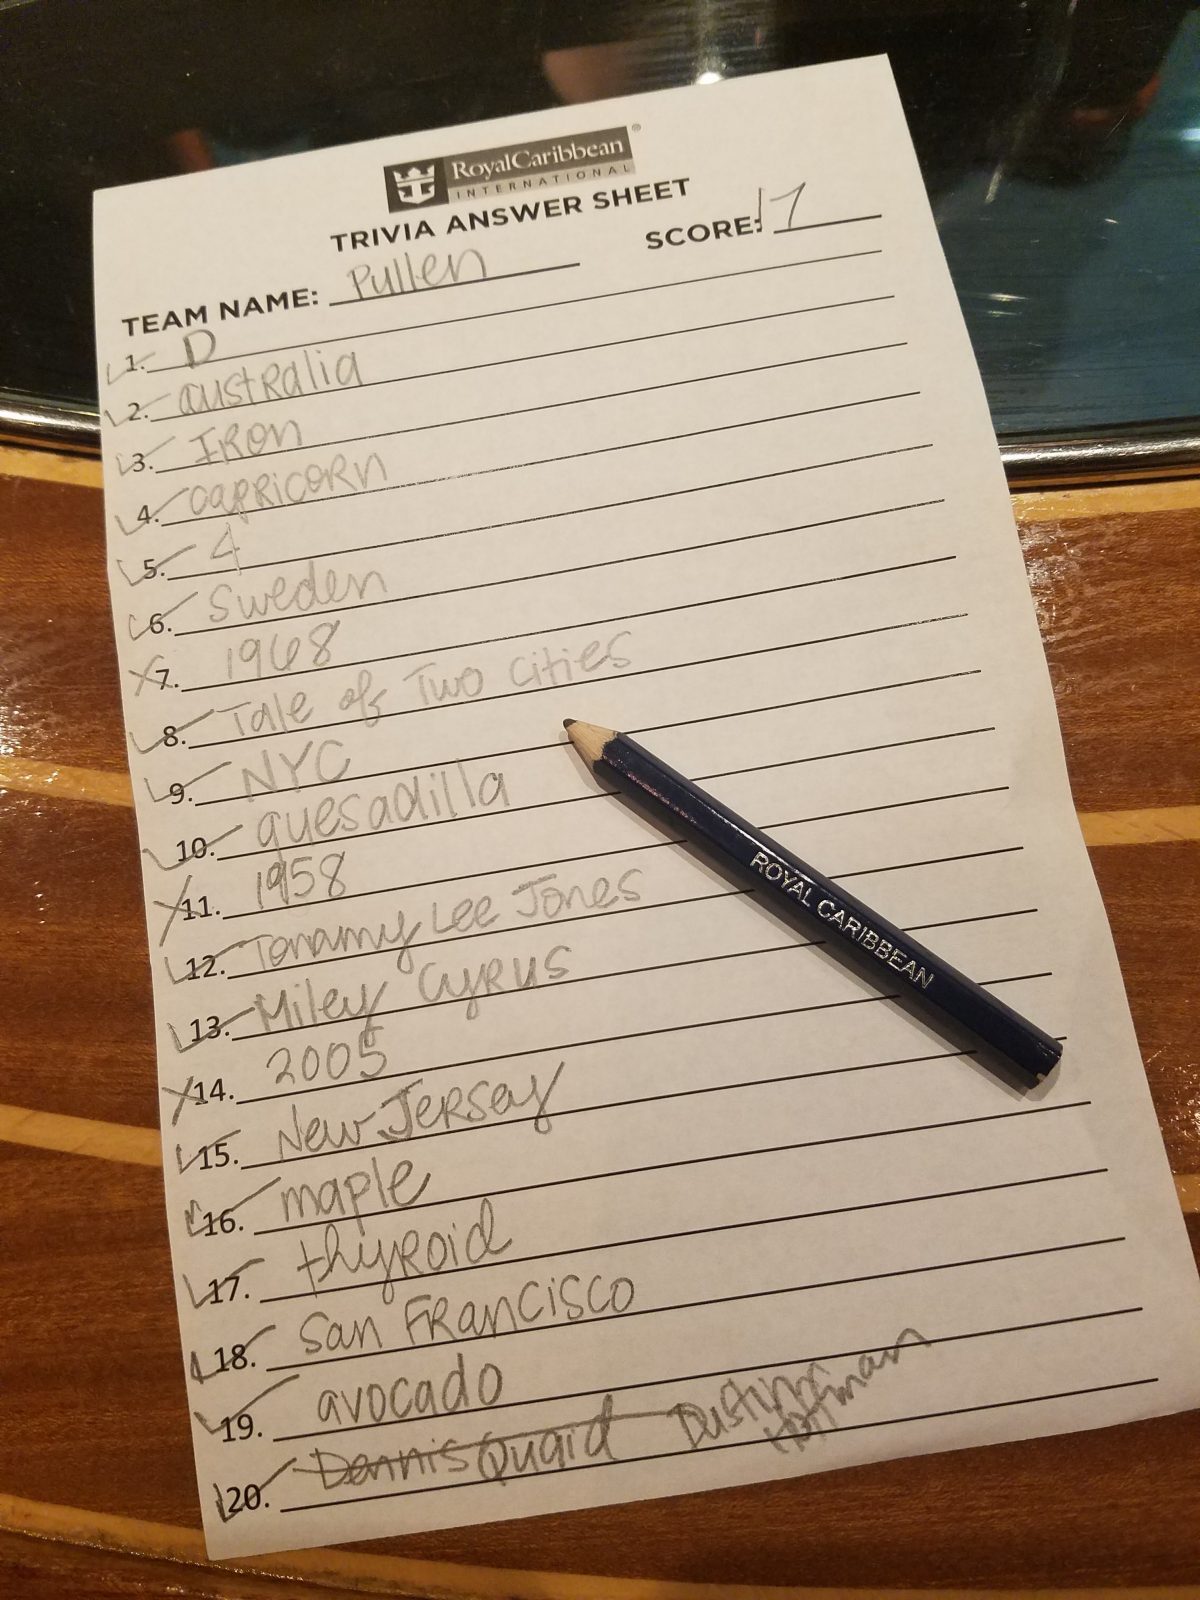 RoyalCaribbean®
INTERNATIONAL
TRIVIA ANSWER SHEET
TEAM NAME: Pullen SCORE: 17
1. D
2. australia
3. IRon
4. capricorn
5. 4
6. Sweden
7. 1968
8. Tale of Two Cities
9. NYC
10. quesadilla
11. 1958
12. Tommy Lee Jones
13. Miley Cyrus
14. 2005
15. New Jersey
16. maple
17. thyroid
18. San Francisco
19. avocado
20. Dennis Quaid Dustin Hoffman
ROYAL CARIBBEAN